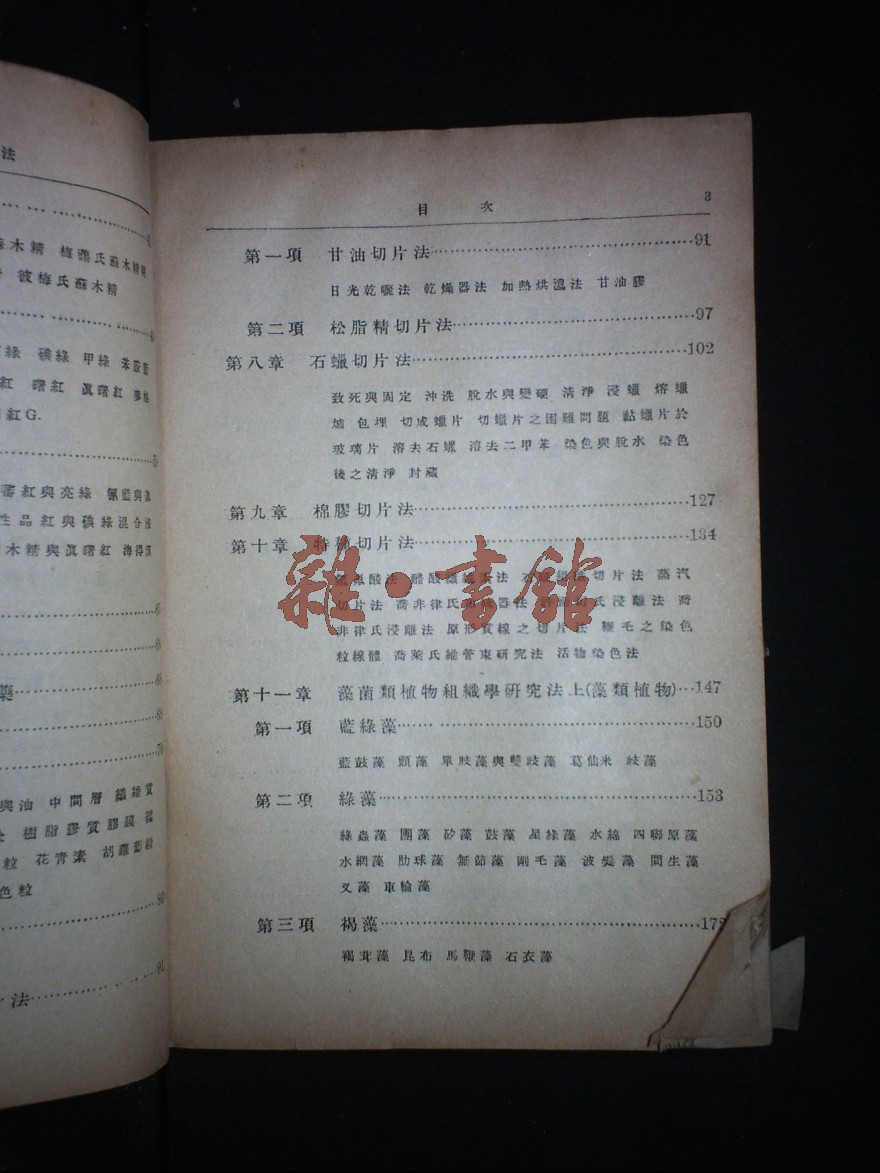 法
木精 梅氏蘇木精
彼梅氏蘇木精
綠 碘綠 甲綠
紅 曙紅 真曙紅
紅G.
蕃紅與亮綠
性品紅與碘綠混合
木精與真曙紅
藥
與油 中間層 纖維質
樹脂膠質膠
粒 花青素 胡蘿蔔
色粒
80
91
法
目 次 3
第一項 甘油切片法 91
日光乾曬法 乾燥器法 加熱烘溫法 甘油膠
第二項 松脂精切片法 97
第八章 石蠟切片法 102
致死與固定 沖洗 脫水與變硬 清淨 浸蠟 熔蠟
爐 包埋 切成蠟片 切蠟片之困難問題 黏蠟片於
玻璃片 溶去石蠟 溶去二甲苯 染色與脫水 染色
後之清淨 封藏
第九章 棉膠切片法 127
第十章 特殊切片法 134
酸法 醋酸纖 法 切片法 蒸汽
切片法 喬非律氏 器法 氏浸離法 喬
非律氏浸離法 原形質線之切片法 鞭毛之染色
粒線體 喬萊氏維管束研究法 活物染色法
第十一章 藻菌類植物組織學研究法上(藻類植物) 147
第一項 藍綠藻 150
藍鼓藻 顫藻 單歧藻與雙歧藻 葛仙米 歧藻
第二項 綠藻 153
綠蟲藻 團藻 矽藻 鼓藻 星綠藻 水綿 四聯原藻
水網藻 肋球藻 無節藻 剛毛藻 波髮藻 間生藻
叉藻 車輪藻
第三項 褐藻 178
褐茸藻 昆布 馬鞭藻 石衣藻
雜·書館